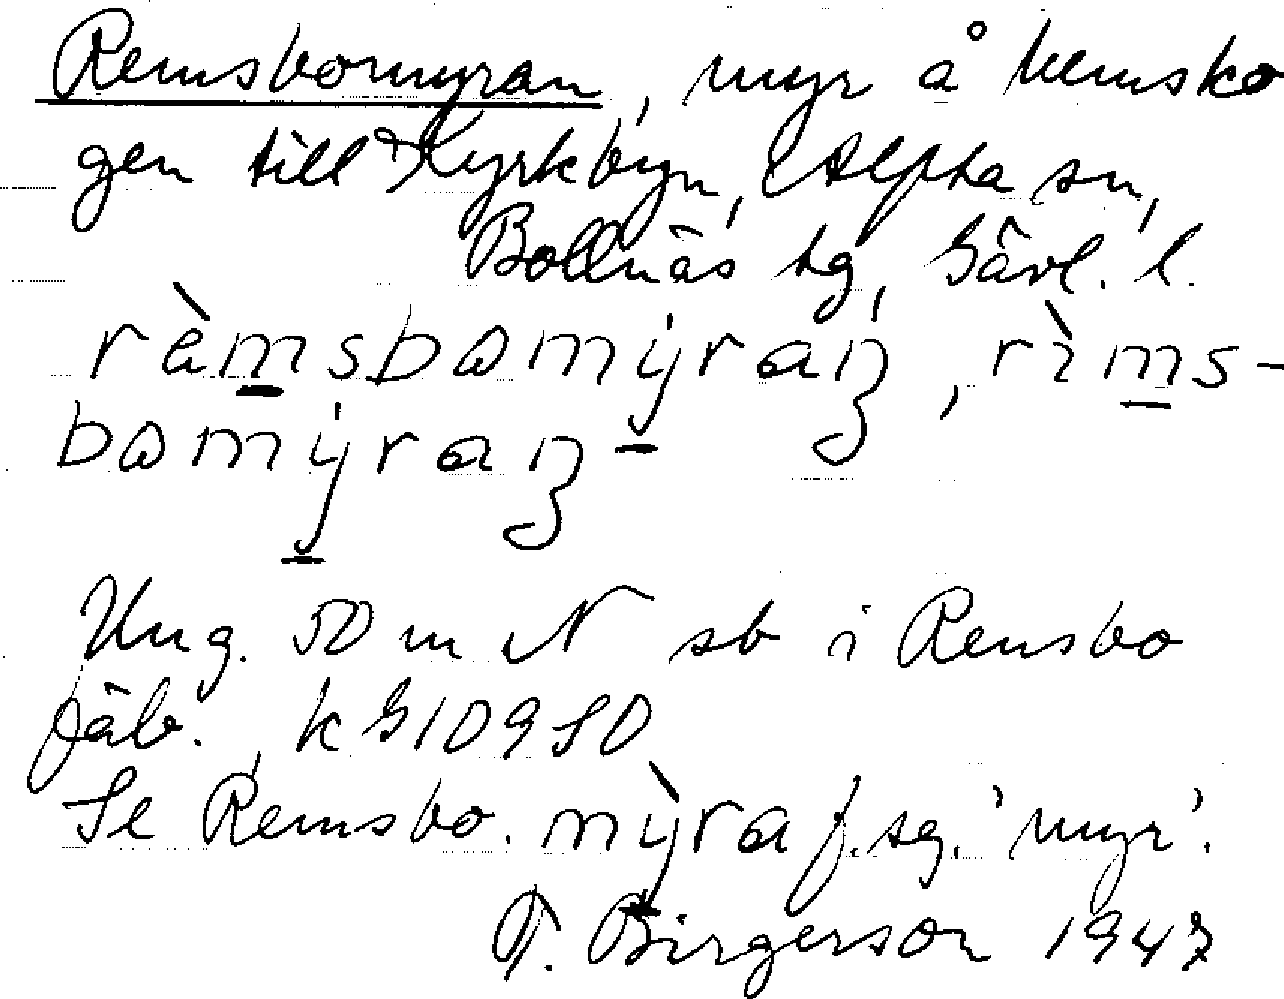 Remsbomyran, myr å hemsko
gen till Kyrkbyn, Alfta sn,
Bollnäs tg, Gävl. l.
ràmsbωmýraꞑ, rìms-
bωmýraꞑ
Ung. 50 m N sb i Remsbo
fäb., k G10950
Se Remsbo. mỳra f. sg. 'myr'.
T. Birgerson 1947